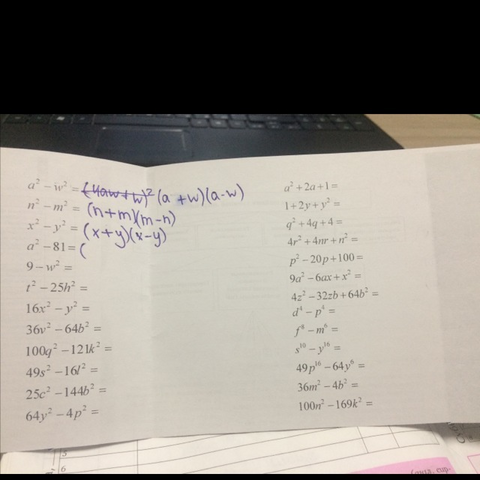 a² − w² = (a + w)(a − w)
n² − m² = (n+m)(m−n)
x² − y² = (x+y)(x−y)
a² − 81 = (
9 − w² =
t² − 25h² =
16x² − y² =
36v² − 64b² =
100q² − 121k² =
49s² − 16l² =
25c² − 144b² =
64y² − 4p² =
a² + 2a + 1 =
1 + 2y + y² =
q² + 4q + 4 =
4r² + 4nr + n² =
p² − 20p + 100 =
9a² − 6ax + x² =
4z² − 32zb + 64b² =
d⁴ − p⁴ =
− m⁶ =
− y¹⁶ =
49p¹⁶ − 64y⁶ =
36m² − 4b² =
100n² − 169k² =
5
6